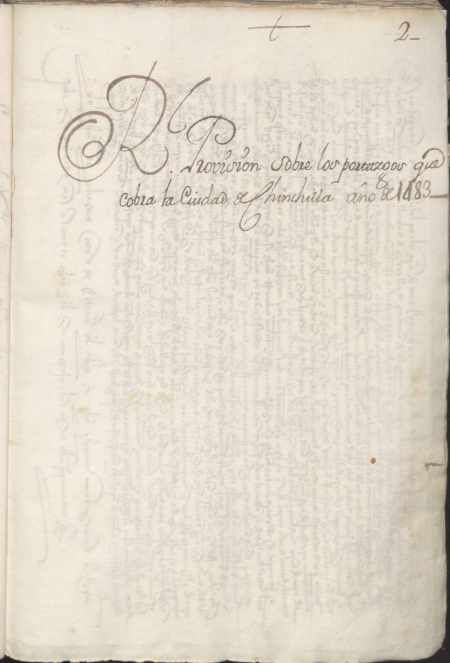 2
Rl. Provision sobre los portazgos que
cobra la Ciudad de Chinchilla año de 1483